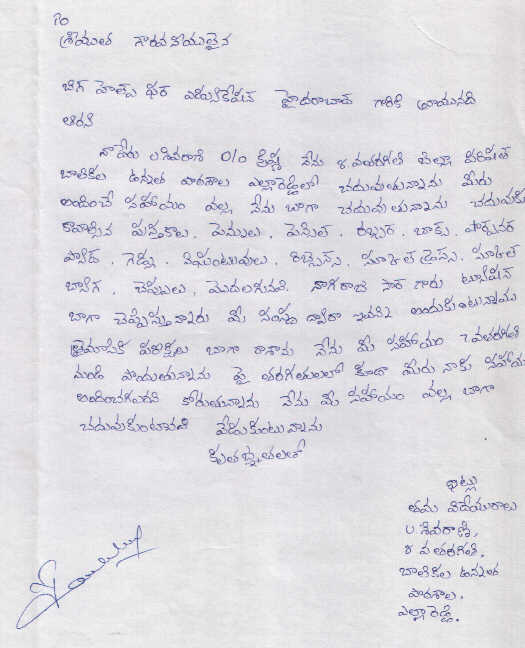 To
శ్రీయుత గౌరవనీయులైన
బిగ్ హెల్ప్ ఫర్ ఎడ్యుకేషన్ హైదరాబాద్ గారికి వ్రాయునది
నా పేరు శివరాణి D/o కృష్ణ నేను 8 వ తరగతి జిల్లా పరిషత్
బాలికల ఉన్నత పాఠశాల ఎల్లారెడ్డిలో చదువుతున్నాను మీరు
అందించే సహాయం వల్ల నేను బాగా చదువుతున్నాను చదువుకి
కావాల్సిన పుస్తకాలు, పెన్నులు, పెన్సిల్, రబ్బర్, బాక్సు, షార్పనర్
ప్యాడ్, గైడ్స్, నిఘంటువులు, రిబ్బెన్స్, స్కూల్ డ్రెస్స్, స్కూల్
బ్యాగ్, చెప్పులు, మొదలగునవి. నాగరాజు సార్ గారు ట్యూషన్
బాగా చెప్పిస్తున్నారు మీ సంస్థ ద్వారా ఇవన్ని అందుకుంటున్నాము
త్రైమాసిక పరీక్షలు బాగా రాశాను నేను మీ సహాయం 7 వ తరగతి
నుండి పొందుతున్నాను పై తరగతులలో కూడా మీరు నాకు సహాయం
అందించగలరని కోరుతున్నాను నేను మీ సహాయం వల్ల బాగా
చదువుకుంటానని వేడుకుంటున్నాను
కృతజ్ఞతలతో
ఇట్లు
తమ విదేయురాలు
U. శివరాణి,
8 వ తరగతి.
బాలికల ఉన్నత
పాఠశాల.
ఎల్లారెడ్డి.